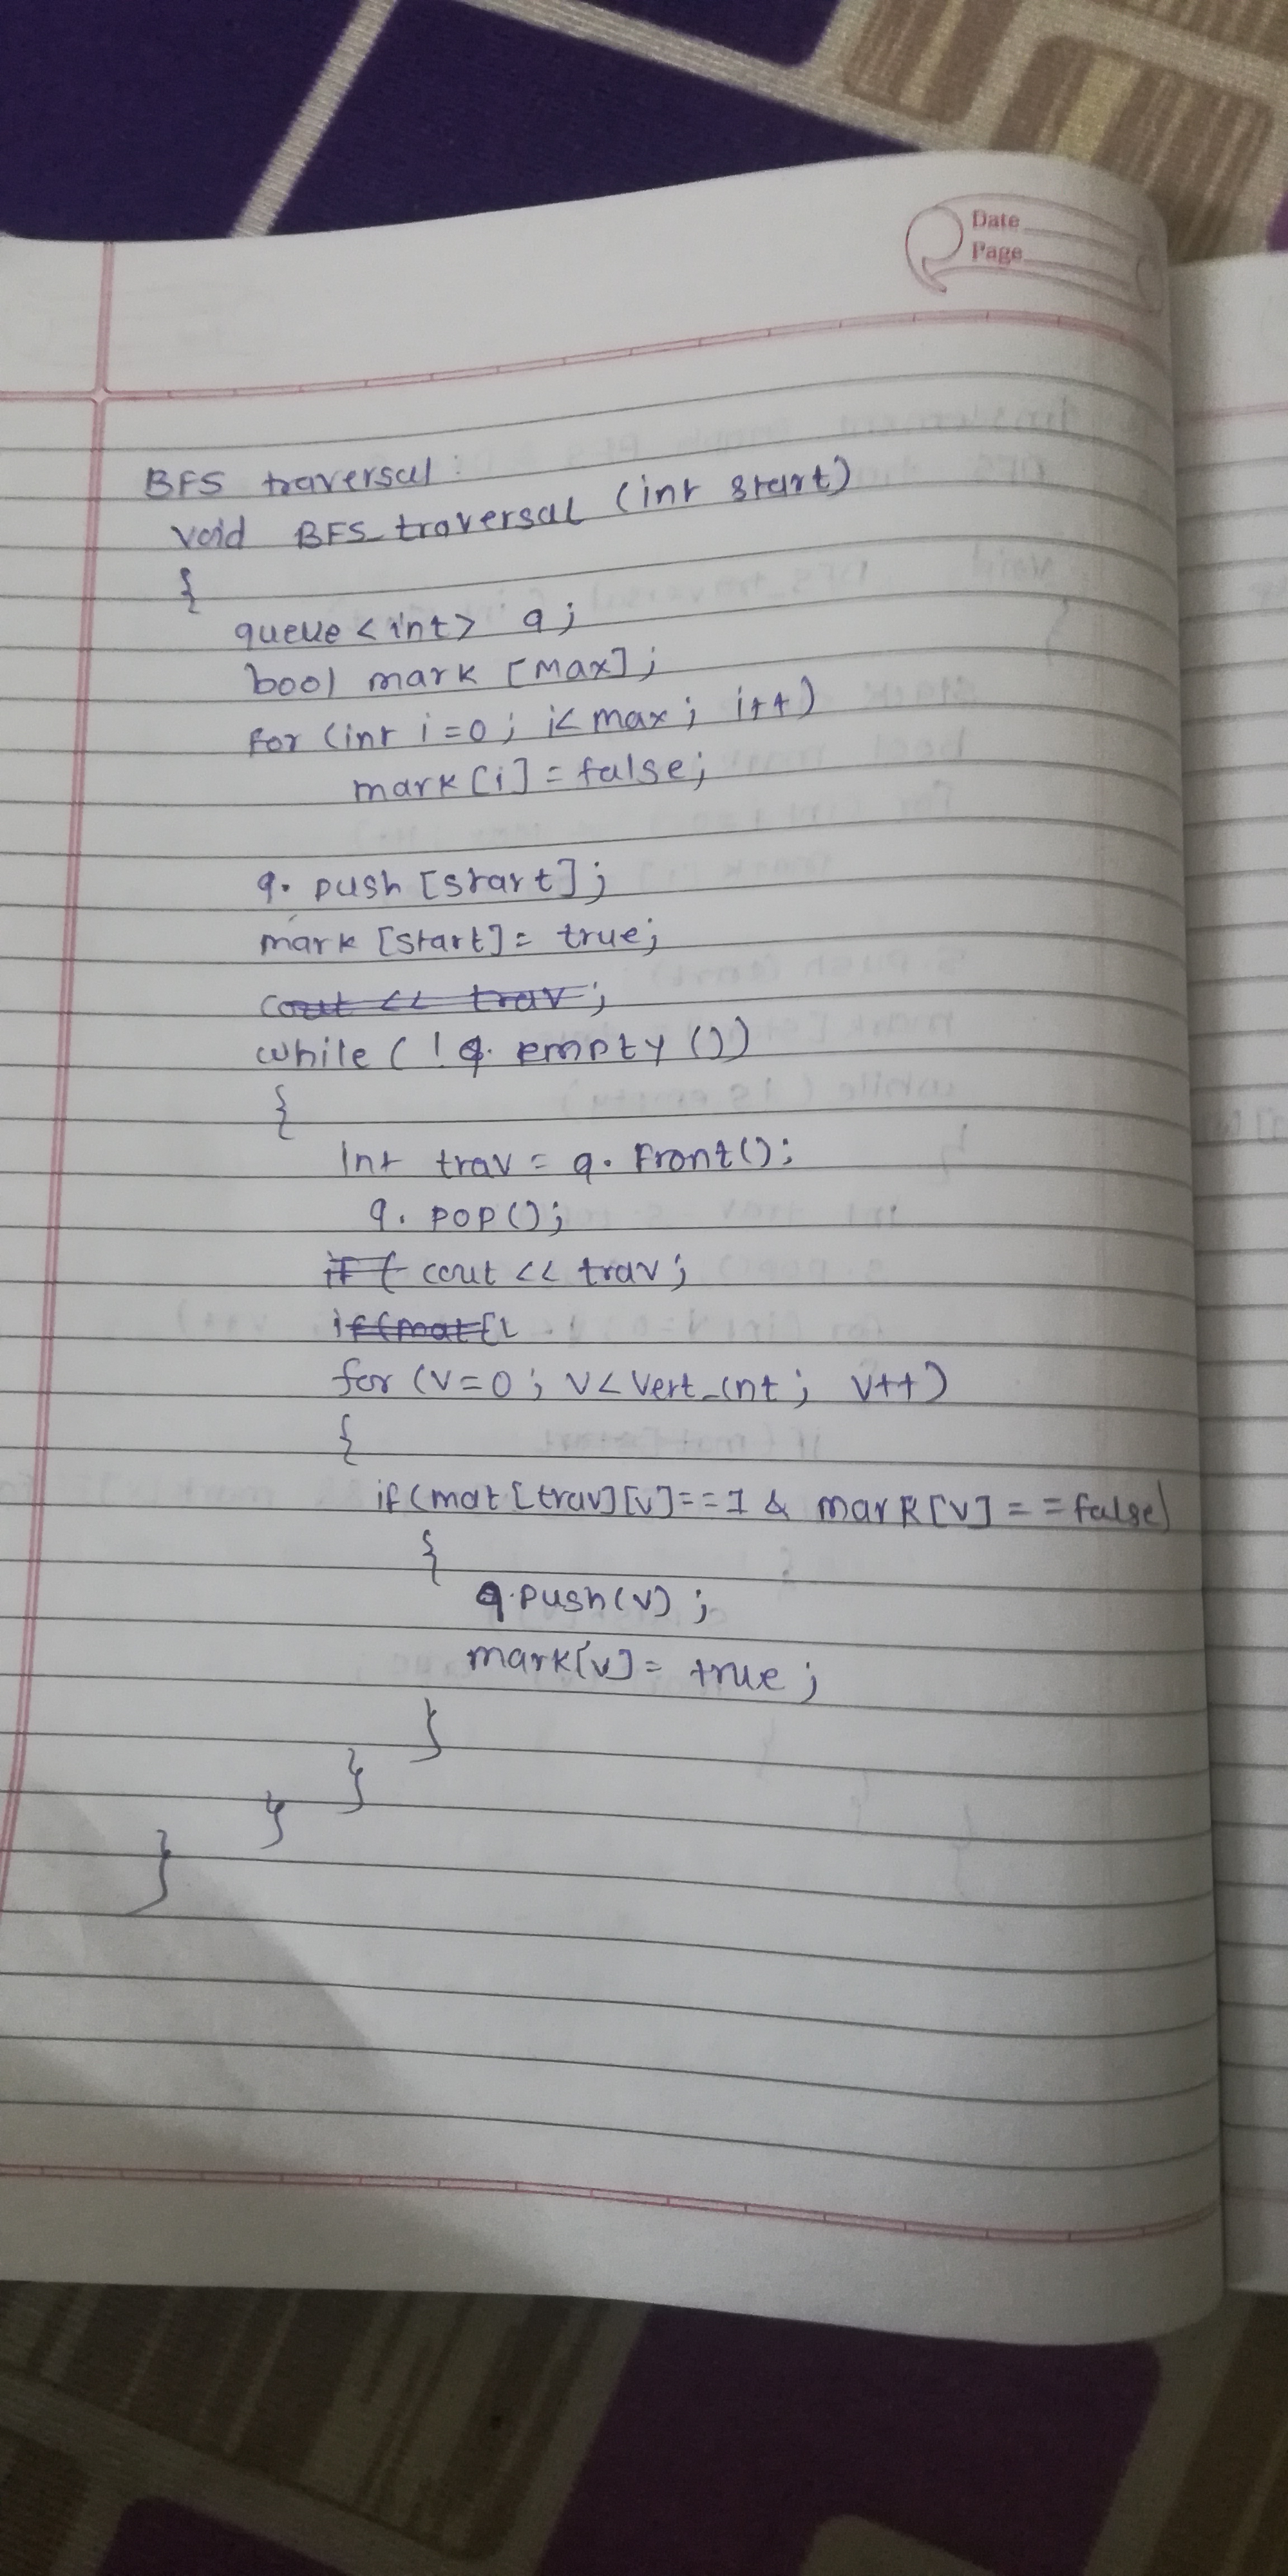 Date
Page
BFS traversal:
void BFS_traversal (int start)
{
queue <int> q;
bool mark [max];
for (int i=0; i< max; i++)
mark[i] = false;
q. push [start];
mark [start] = true;
cout << trav;
while ( ! q. empty ())
{
int trav = q. Front();
q. pop();
if ( cout << trav;
if (mat [
for (v=0; v<vert_cnt; v++)
{
if (mat [trav][v]==1 & mark[v] == false)
{
q.push(v);
mark[v] = true;
}
}
}
}